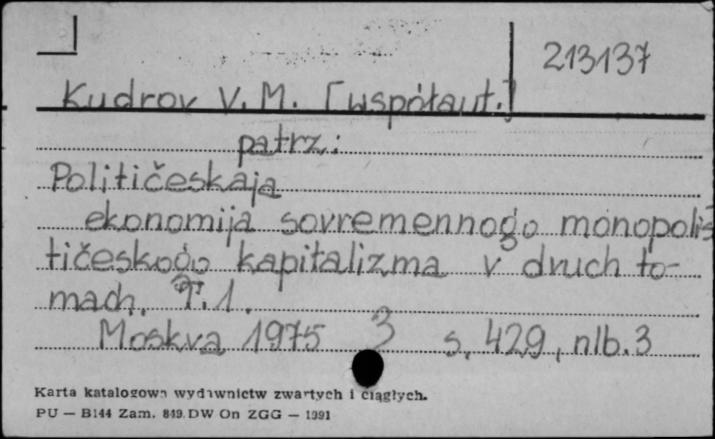 213137
Kudrov V. M. [współaut.]
patrz:
Političeskaja
ekonomija sovremennogo monopolis
tičeskogo kapitalizma v dvuch to-
mach. T. 1.
Moskva 1975 3 s. 429, nlb. 3
Karta katalogowa wydawnictw zwartych i ciągłych.
PU — B144 Zam. 849. DW On ZGG — 1991